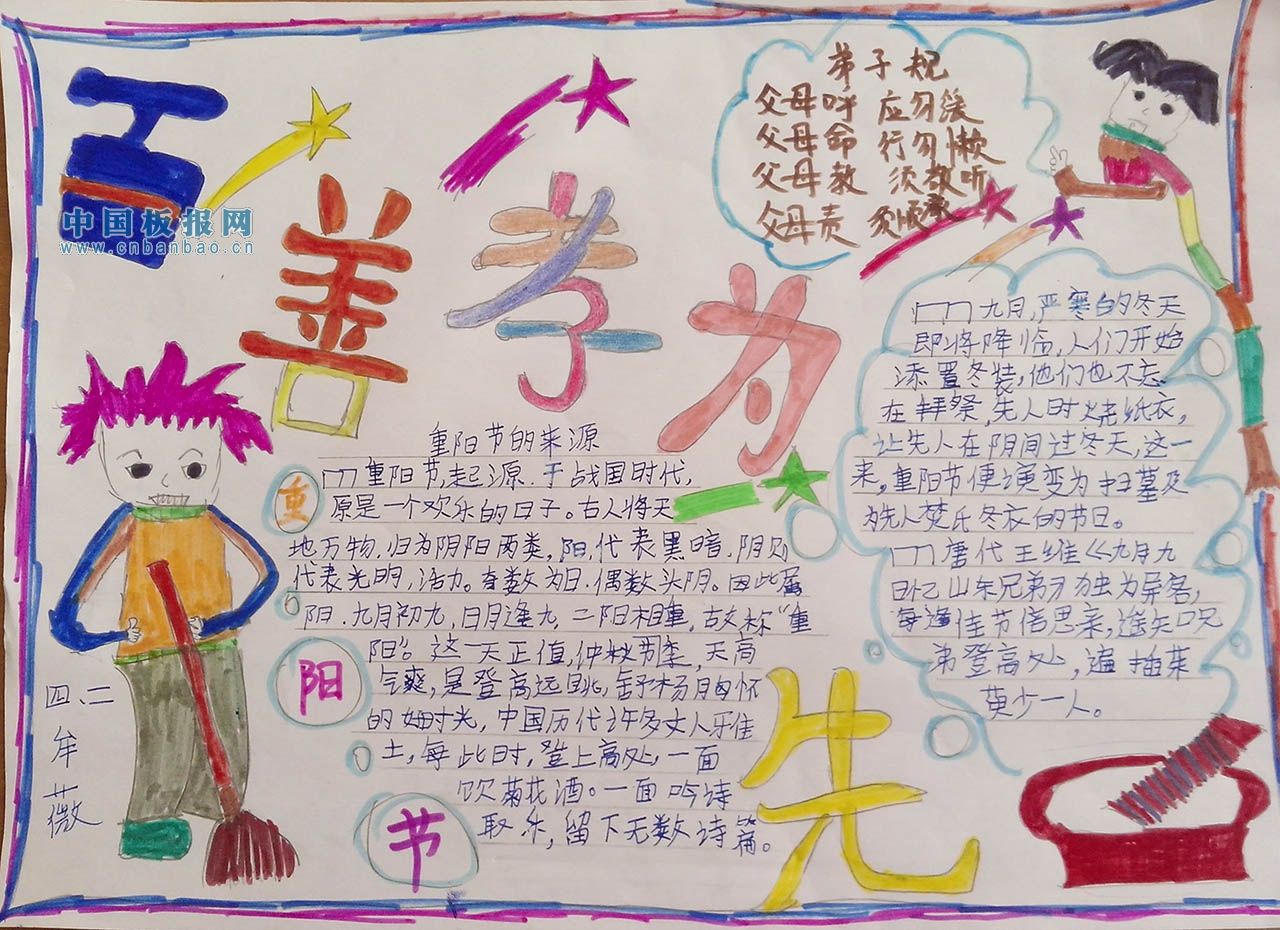 百善孝为先
中国板报网
www.cnbanbao.cn
弟子规
父母呼 应勿缓
父母命 行勿懒
父母教 须敬听
父母责 须顺承
重阳节的来源
重阳节,起源.于战国时代,
原是一个欢乐的日子。古人将天
地万物.归为阴阳两类,阳.代表黑暗.阴则
代表光明,活力。奇数为日.偶数头阴。因此属
阳.九月初九,日月逢九,二阳相重,故称“重
阳”。这一天正值,仲秋节季,天高
气爽,是登高远眺,舒杨胸怀
的好时光,中国历代许多文人乐佳
士,每此时,登上高处,一面
饮菊花酒。一面吟诗
取乐,留下无数诗篇。
重
阳
节
九月,严寒的冬天
即将降临,人们开始
添置冬装,他们也不忘
在拜祭,先人时烧纸衣,
让先人在阴间过冬天,这一
来,重阳节便演变为扫墓及
为先人焚氏冬衣的节日。
唐代王维《九月九
日忆山东兄弟》独为异客,
每逢佳节倍思亲,遥知兄
弟登高处,遍插茱
萸少一人。
四、二
牟
薇